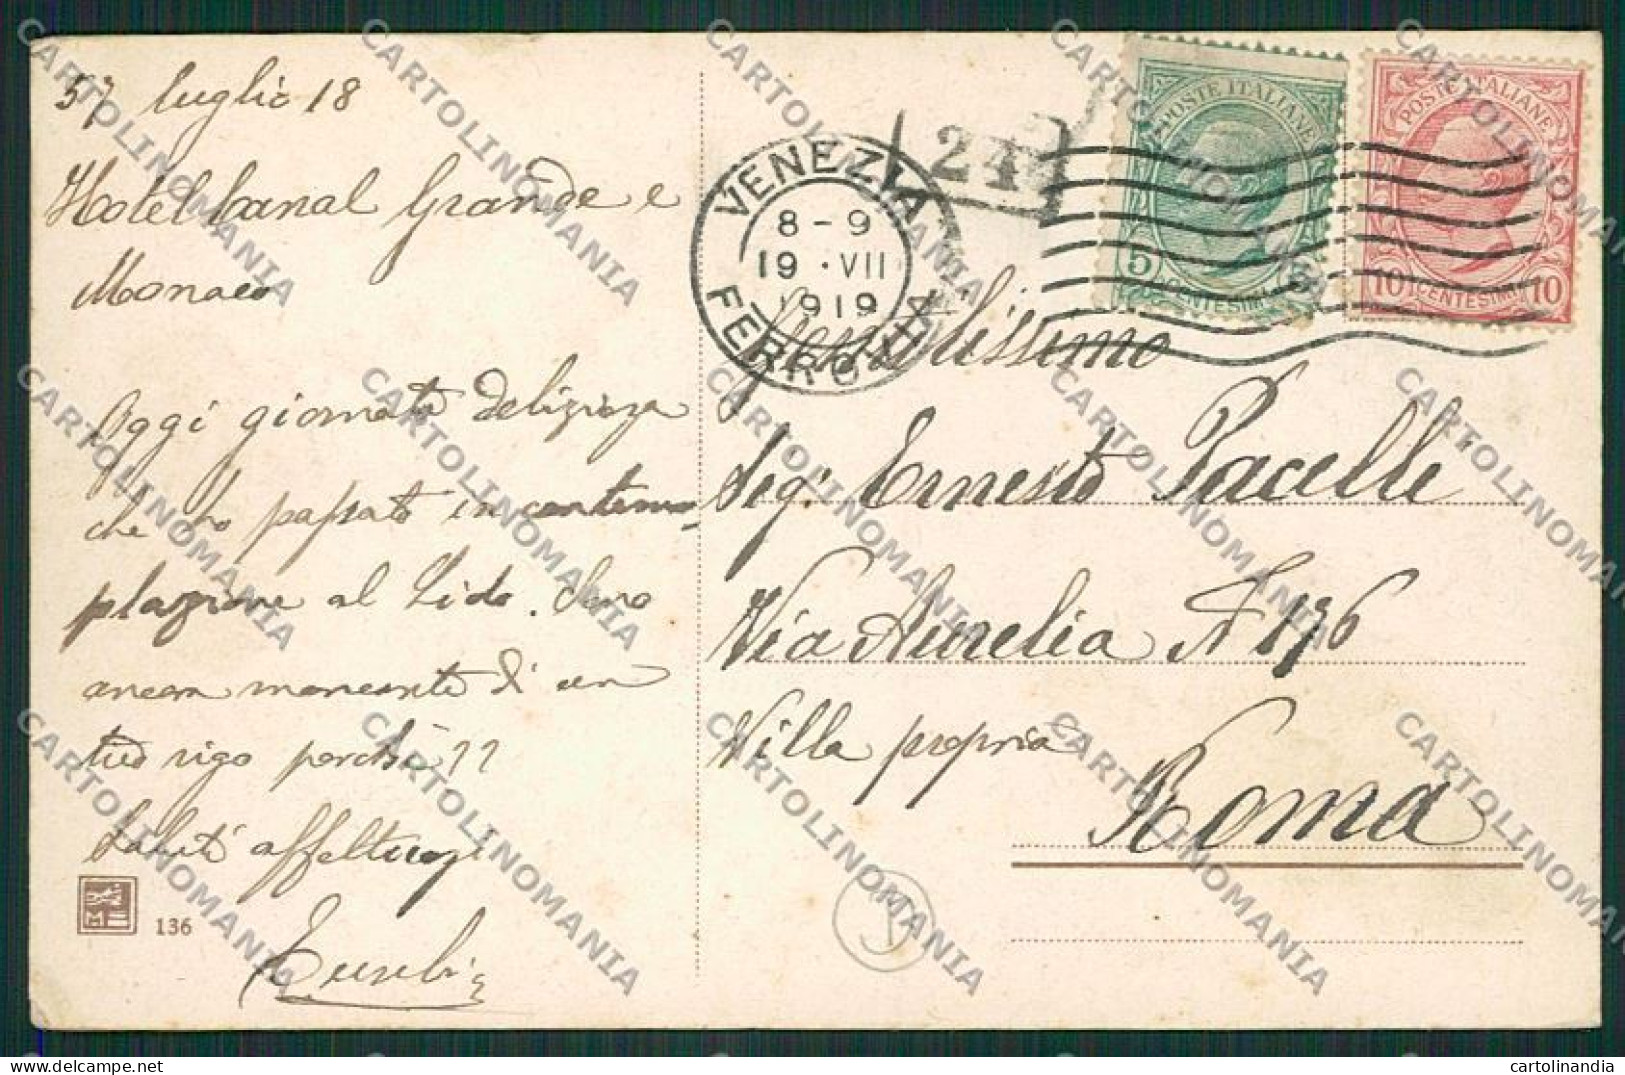 luglio 18
Hotel Canal Grande e
Monaco
Oggi giornata deliziosa
che ho passato in contem-
plazione al Lido. Sono
ancora mancante di un
tuo rigo perchè??
Saluti affettuosi
136
VENEZIA
8-9
19·VII
1919
FERROVIA
24
POSTE ITALIANE
5
CENTESIMI
POSTE ITALIANE
10 CENTESIMI 10
Gentilissimo
Sig. Ernesto Pacelli
Via Aurelia N 136
Villa propria
Roma
CARTOLINOMANIA
cartolinandia